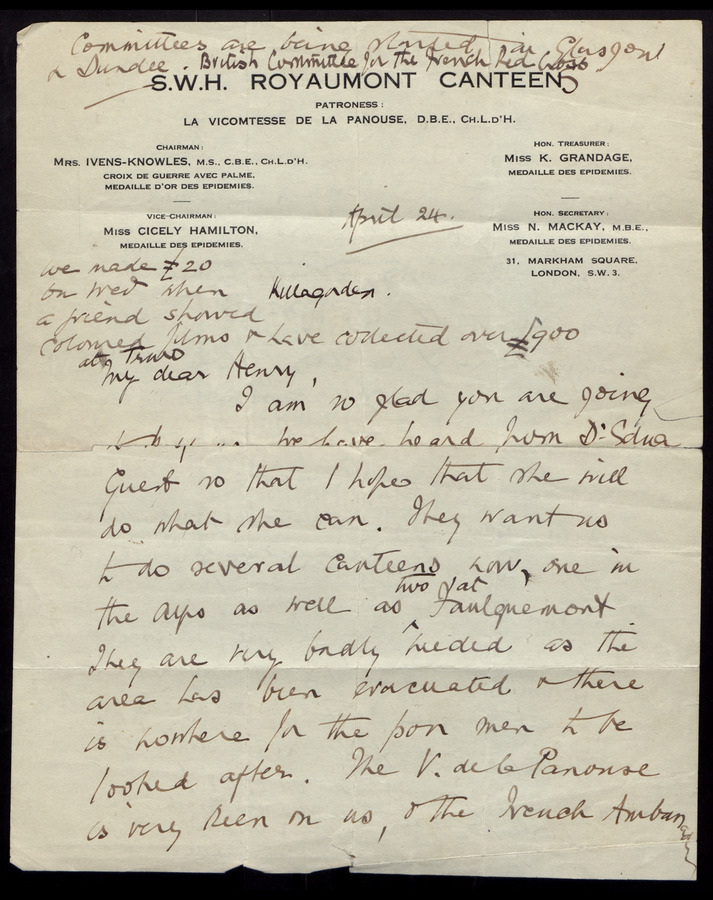 Committees are being started in Glasgow
& Dundee. British Committee for the French Red Cross
S.W.H. ROYAUMONT CANTEEN
PATRONESS :
LA VICOMTESSE DE LA PANOUSE, D.B.E., CH.L.D'H.
CHAIRMAN :
MRS. IVENS-KNOWLES, M.S., C.B.E., CH.L.D'H.
CROIX DE GUERRE AVEC PALME,
MEDAILLE D'OR DES EPIDEMIES.
VICE-CHAIRMAN :
MISS CICELY HAMILTON,
MEDAILLE DES EPIDEMIES.
HON. TREASURER :
MISS K. GRANDAGE,
MEDAILLE DES EPIDEMIES.
HON. SECRETARY :
MISS N. MACKAY, M.B.E.,
MEDAILLE DES EPIDEMIES.
31, MARKHAM SQUARE,
LONDON, S.W.3.
April 24.
Killagorden.
we made £20
on Wed when
a friend showed
coloured films & have collected over £900
at Truro
My dear Henry,
I am so glad you are going
we have heard from Dr Edna
Guest so that I hope that she will
do what she can. They want us
to do several Canteens now, one in
the Alps as well as two at Faulquemont
They are very badly needed as the
area has been evacuated & there
is nowhere for the poor men to be
looked after. The V. de la Panouse
is very keen on us, & the French Ambassador